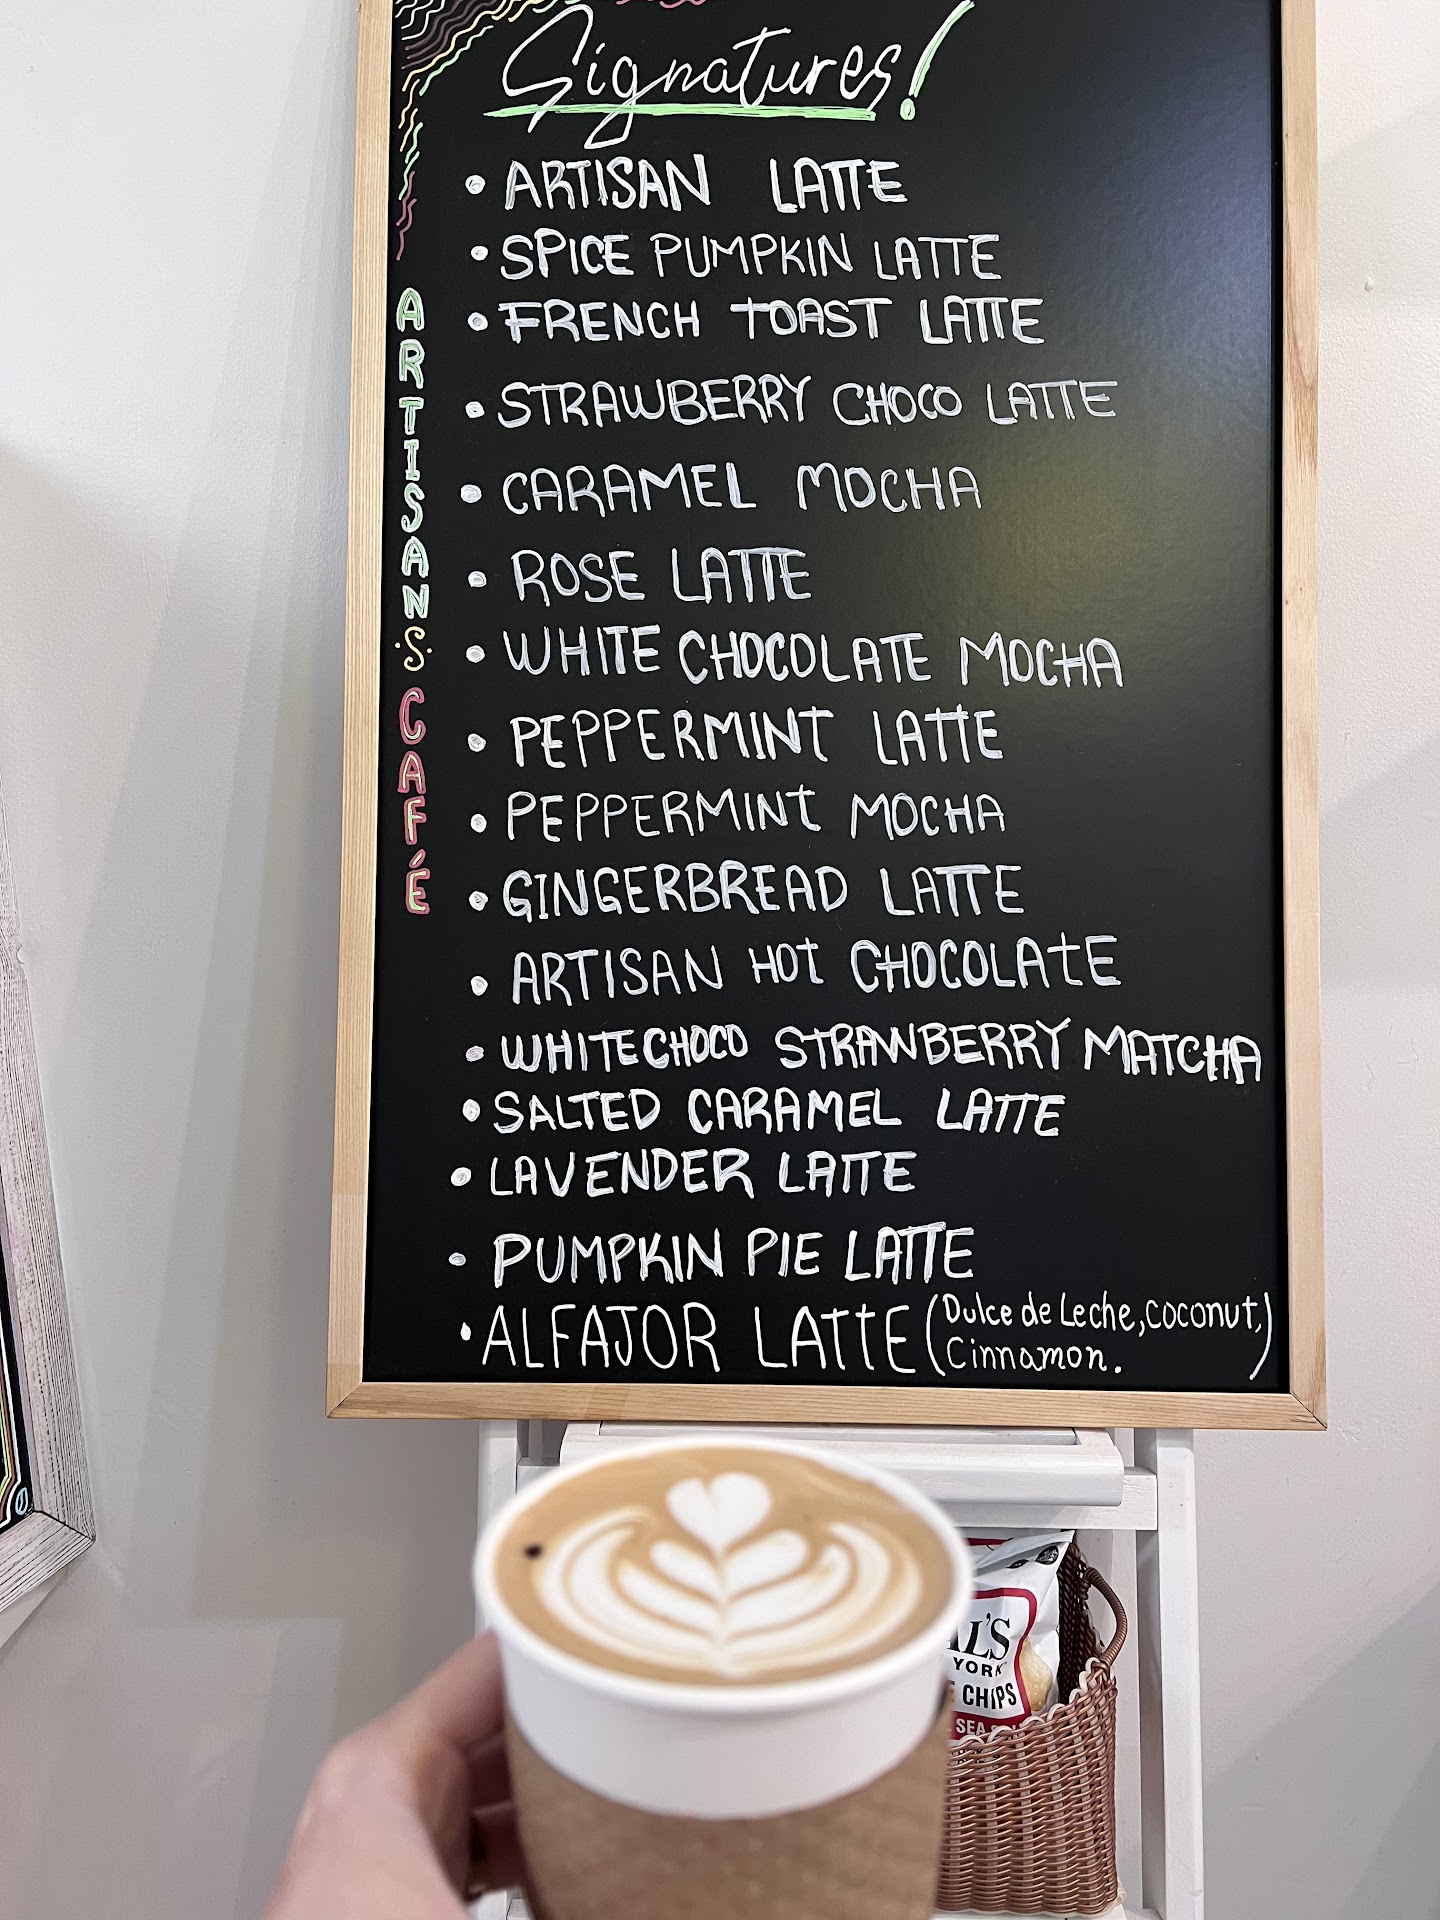 Signatures!
• ARTISAN LATTE
• SPICE PUMPKIN LATTE
• FRENCH TOAST LATTE
• STRAWBERRY CHOCO LATTE
• CARAMEL MOCHA
• ROSE LATTE
• WHITE CHOCOLATE MOCHA
• PEPPERMINT LATTE
• PEPPERMINT MOCHA
• GINGERBREAD LATTE
• ARTISAN HOT CHOCOLATE
• WHITE CHOCO STRAWBERRY MATCHA
• SALTED CARAMEL LATTE
• LAVENDER LATTE
• PUMPKIN PIE LATTE
• ALFAJOR LATTE (Dulce de Leche, coconut,
Cinnamon.)
ARTISAN'S CAFÉ
AL'S
YORK
CHIPS
SEA